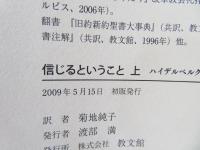 ルピス、2006年)。
翻書 『旧約新約聖書大事典』(共訳、教文
書注解』(共訳、教文館、1996年) 他。
信じるということ 上 ハイデルベルク
2009年5月15日 初版発行
訳 者 菊地純子
発行者 渡部 満
発行所 株式会社 教文館